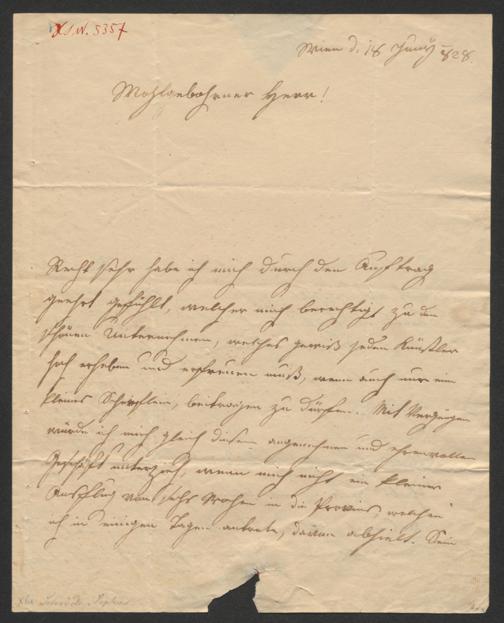 I.N. 5357
Wien d. 18 Juny 828.
Wohlgebohrner Herr!
Recht sehr habe ich mich durch den Auftrag
geehrt gefühlt, welcher mich berechtigt zu dem
schönen Unternehmen, welches gewiß jeden Künstler
hoch erheben und erfreuen muß, wenn auch nur ein
kleines Scherflein, beitragen zu dürfen. Mit Vergnügen
würde ich mich gleich diesem angenehmen und ehrenvollen
Geschäft unterzieh, wenn mich nicht ein kleiner
Ausflug von sechs Wochen in die Provinz, welchen
ich in einigen Tagen antrete, davon abhielt. Sein